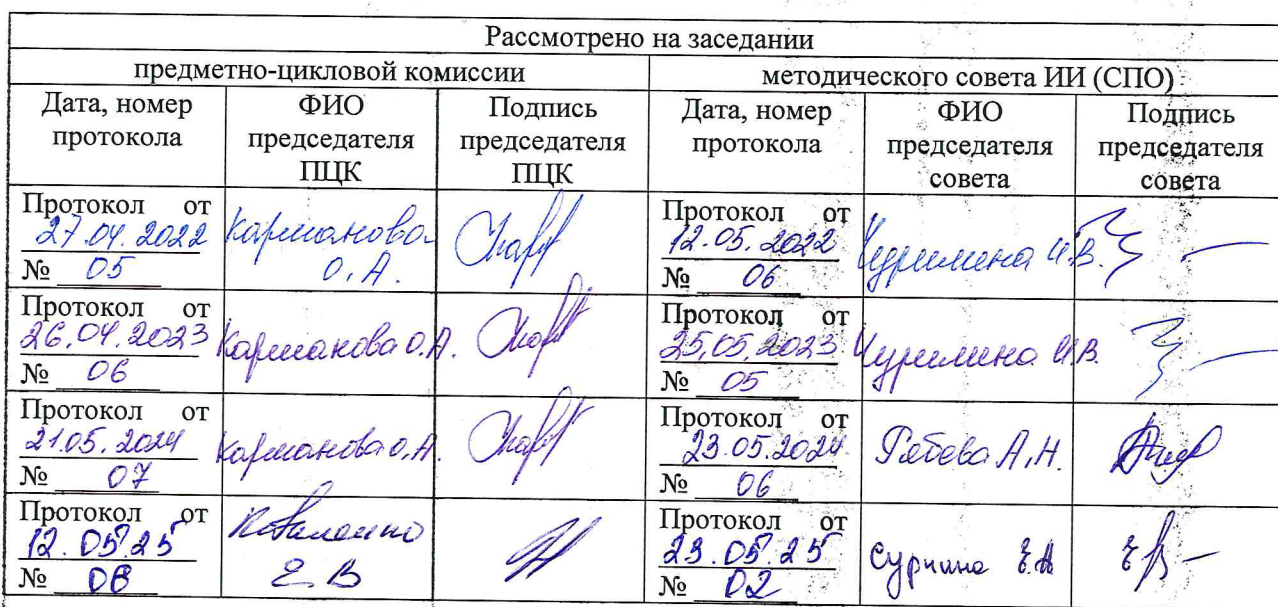 Рассмотрено на заседании
предметно-цикловой комиссии методического совета ИИ (СПО)
Дата, номер протокола ФИО председателя ПЦК Подпись председателя ПЦК Дата, номер протокола ФИО председателя совета Подпись председателя совета
Протокол от 27.04.2022 № 05 Карманова О.А. Протокол от 12.05.2022 № 06 Чурилина И.В.
Протокол от 26.04.2023 № 06 Карманова О.А. Протокол от 25.05.2023 № 05 Чурилина И.В.
Протокол от 21.05.2024 № 07 Карманова О.А. Протокол от 23.05.2024 № 06 А.Н.
Протокол от 12.05.25 № Е.В Протокол от 23.05.25 № 02